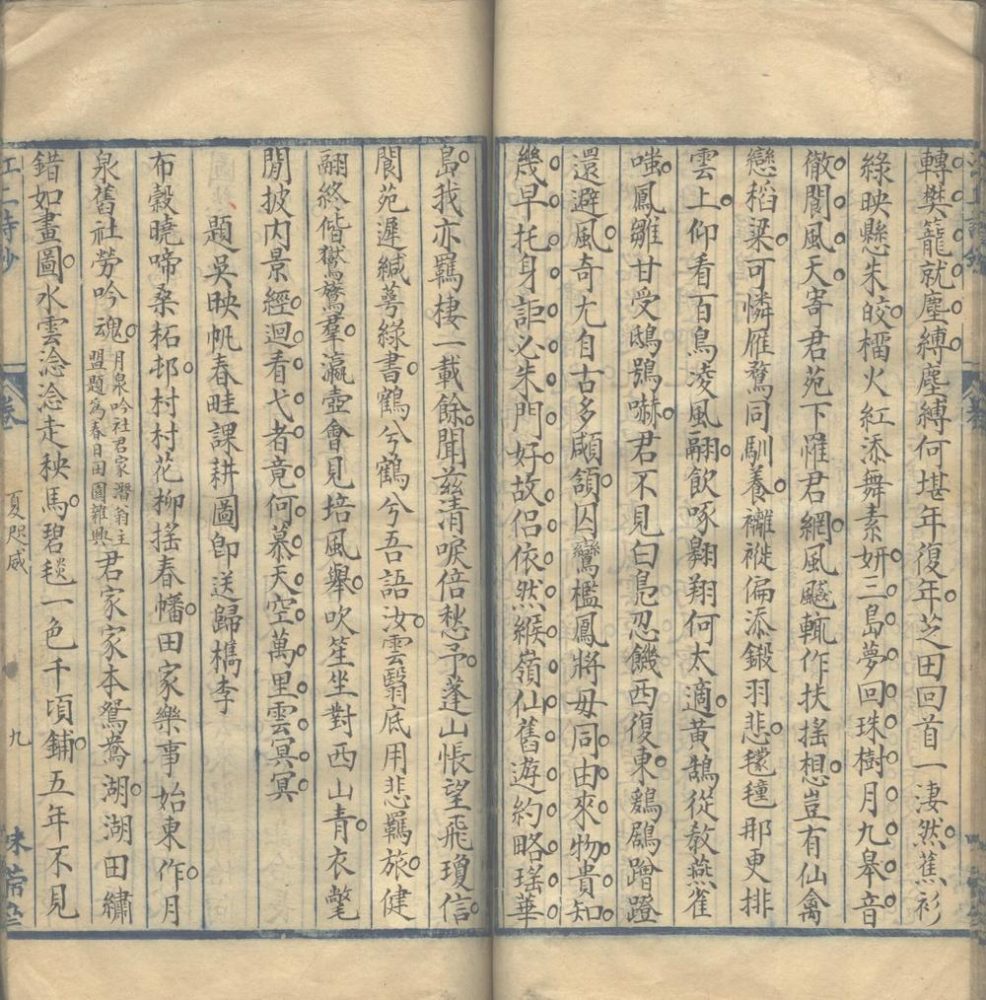 轉樊籠就塵縛塵縛何堪年復年芝田回首一淒然蕉衫
綠映懸朱皎榴火紅添舞素妍三島夢回珠樹月九皋音
徹閬風天寄君苑下罹君網風颿輒作扶搖想豈有仙禽
戀稻粱可憐雁鶩同馴養褵褷偏添鍛羽悲氋氃那更排
雲上仰看百鳥凌風翮飲啄翱翔何太適黃鵠從教燕雀
嗤鳳雛甘受鴟鴞嚇君不見白鳧忍饑西復東鷄鶋蹭蹬
還避風奇尤自古多顑頷囚鸞檻鳳將毋同由來物貴知
幾早托身詎必朱門好故侶依然緱嶺仙舊遊約略瑤華
島我亦羈棲一載餘聞茲清唳倍愁予蓬山悵望飛瓊信
閬苑遲緘萼綠書鶴兮鶴兮吾語汝雲翳底用悲羈旅健
翮終偕鸑鷟羣瀛壺會見培風舉吹笙坐對西山青衣氅
閒披内景經迴看弋者竟何慕天空萬里雲冥冥
題吳映帆春畦課耕圖卽送歸檇李
布穀曉啼桑柘邨村村花柳搖春幡田家樂事始東作月
泉舊社勞吟魂月泉吟社君家潛翁主盟題爲春日田園雜興君家家本鴛鴦湖湖田繡
錯如畫圖水雲淰淰走秧馬碧毯一色千頃鋪五年不見
卷
夏咫威
九
味蓉